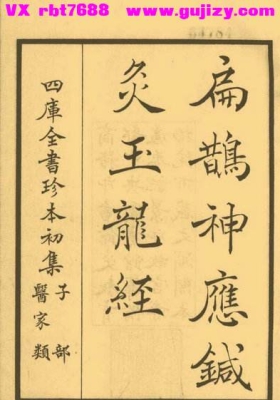 VX rbt7688 www.gujizy.com
扁鵲神應鍼
灸玉龍經
四庫全書珍本初集 子部
醫家類